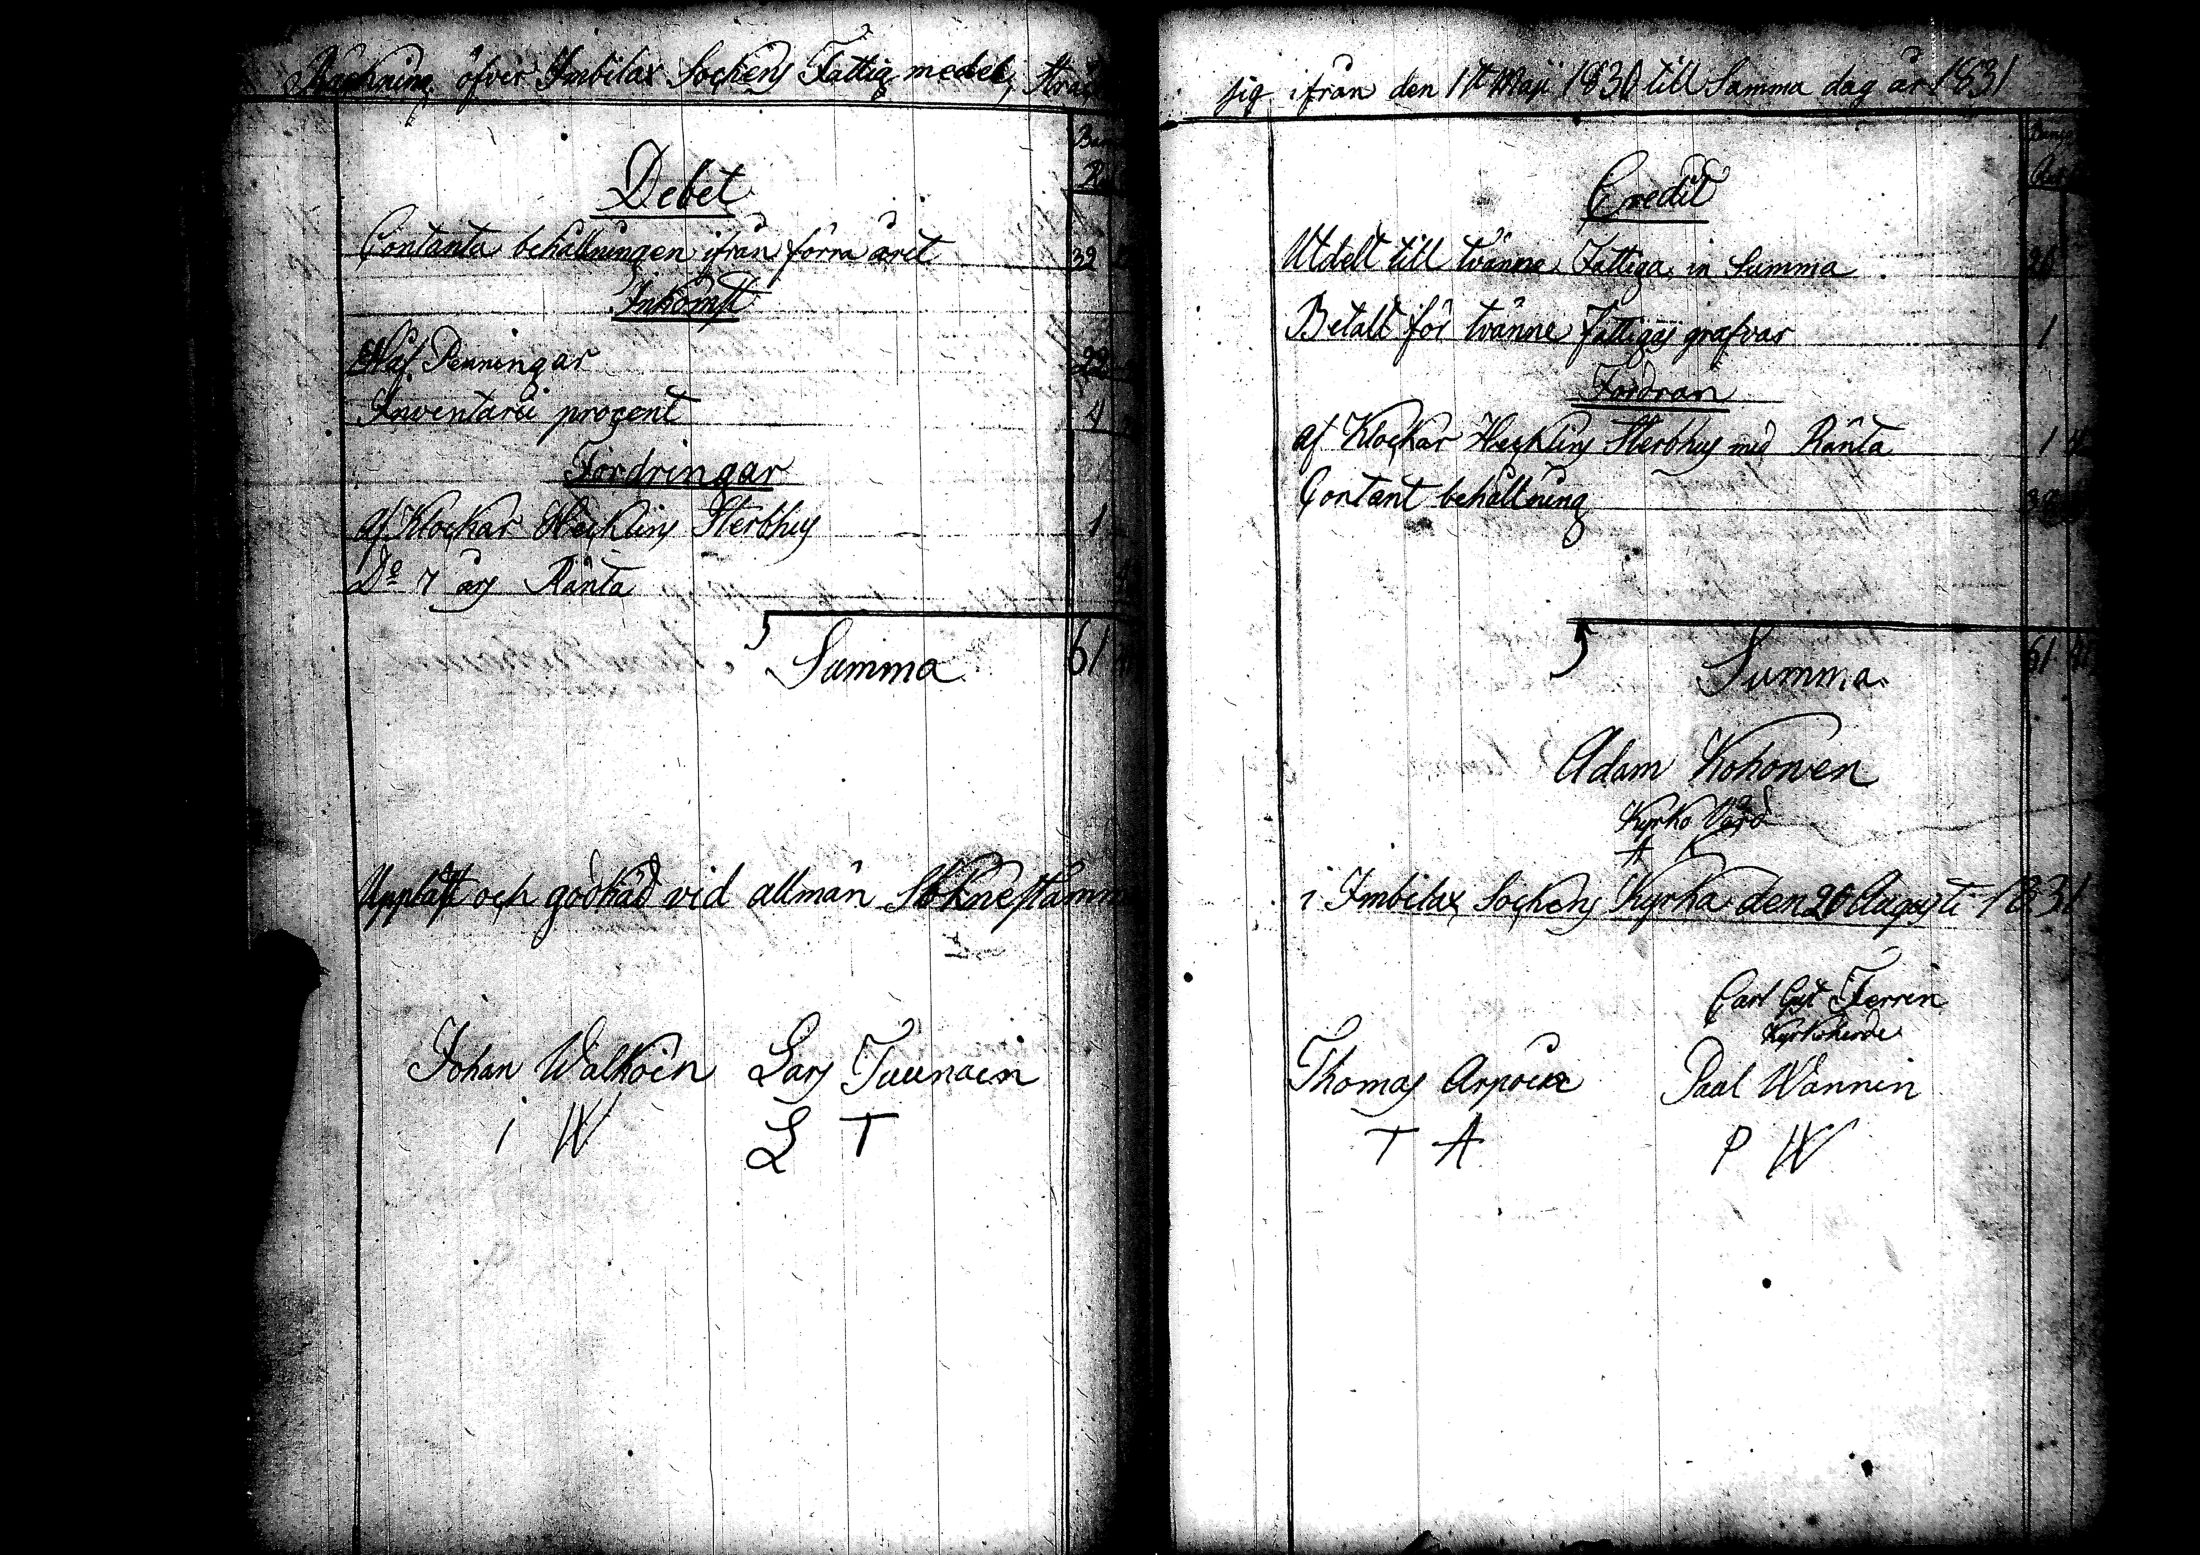 Räkning öfver Imbilax Sockens Fattig medel, sträc
Debet
Contanta behållningen ifrån förra året 32
Inkomst
Håf Penningar 22
Inventarii procent 4
Fordringar
af Klockar Hecklins Sterbhus 1
Do 7 års Ränta
Summa 61
Uppläst och godkäd vid allmän Soknestämm
Johan Walkoin Lars Tuunain
i W L T
sig ifrån den 1te Maji 1830 till Samma dag år 1831
Credit
Utdelt till tvänne Fattiga in Summa 20
Betalt för tvänne fattigas grafvar 1
Fordran
af Klockar Hecklins Sterbhus med Ränta 1
Contant behållning
Summa 61
Adam Kohonen
Kyrko Värd
A K
i Imbilax Sockens Kyrka den 20 Augusti 1831
Carl Gust Ferrin
Kyrkoherde
Thomas Arpoin Paal Wännin
T A P W